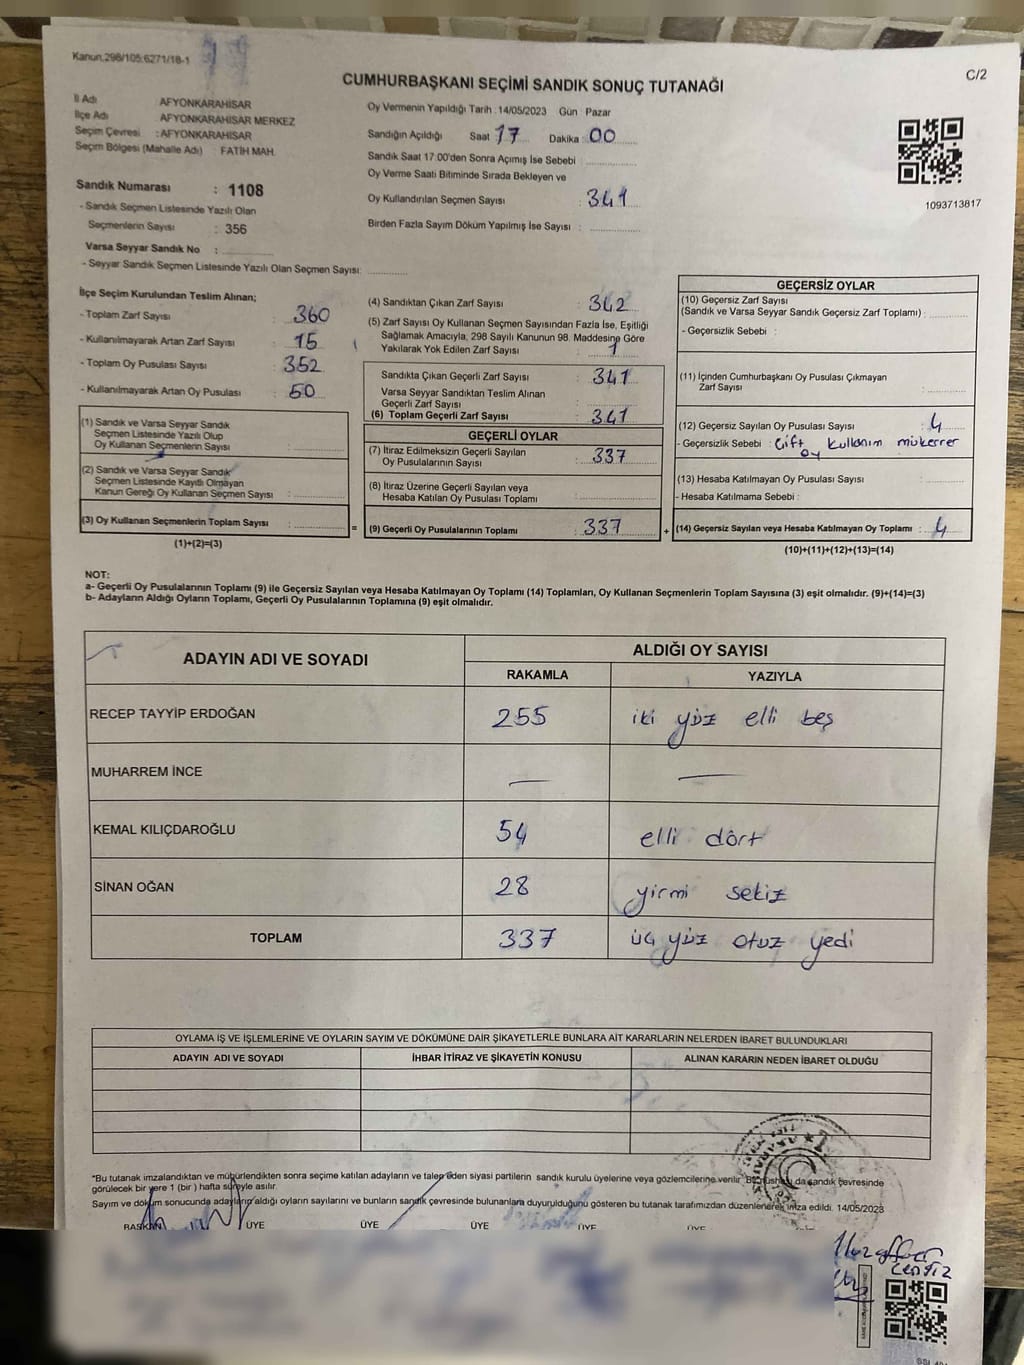 Kanun.298/105:6271/18-1
C/2
CUMHURBAŞKANI SEÇİMİ SANDIK SONUÇ TUTANAĞI
İl Adı AFYONKARAHİSAR
İlçe Adı AFYONKARAHİSAR MERKEZ
Seçim Çevresi : AFYONKARAHİSAR
Seçim Bölgesi (Mahalle Adı) FATİH MAH.
Sandık Numarası : 1108
- Sandık Seçmen Listesinde Yazılı Olan
Seçmenlerin Sayısı : 356
Varsa Seyyar Sandık No :
- Seyyar Sandık Seçmen Listesinde Yazılı Olan Seçmen Sayısı:
Oy Vermenin Yapıldığı Tarih : 14/05/2023 Gün Pazar
Sandığın Açıldığı Saat 17 Dakika : 00
Sandık Saat 17:00'den Sonra Açımış İse Sebebi
Oy Verme Saati Bitiminde Sırada Bekleyen ve
Oy Kullandırılan Seçmen Sayısı : 341
Birden Fazla Sayım Döküm Yapılmış İse Sayısı :
1093713817
İlçe Seçim Kurulundan Teslim Alınan;
- Toplam Zarf Sayısı : 360
- Kullanılmayarak Artan Zarf Sayısı : 15
- Toplam Oy Pusulası Sayısı : 352
- Kullanılmayarak Artan Oy Pusulası : 50
(1) Sandık ve Varsa Seyyar Sandık
Seçmen Listesinde Yazılı Olup
Oy Kullanan Seçmenlerin Sayısı :
(2) Sandık ve Varsa Seyyar Sandık
Seçmen Listesinde Kayıtlı Olmayan
Kanun Gereği Oy Kullanan Seçmen Sayısı :
(3) Oy Kullanan Seçmenlerin Toplam Sayısı : =
(1)+(2)=(3)
(4) Sandıktan Çıkan Zarf Sayısı : 342
(5) Zarf Sayısı Oy Kullanan Seçmen Sayısından Fazla İse, Eşitliği
Sağlamak Amacıyla, 298 Sayılı Kanunun 98. Maddesine Göre
Yakılarak Yok Edilen Zarf Sayısı : 1
Sandıkta Çıkan Geçerli Zarf Sayısı : 341
Varsa Seyyar Sandıktan Teslim Alınan
Geçerli Zarf Sayısı :
(6) Toplam Geçerli Zarf Sayısı : 341
GEÇERLİ OYLAR
(7) İtiraz Edilmeksizin Geçerli Sayılan
Oy Pusulalarının Sayısı : 337
(8) İtiraz Üzerine Geçerli Sayılan veya
Hesaba Katılan Oy Pusulası Toplamı :
(9) Geçerli Oy Pusulalarının Toplamı : 337 +
GEÇERSİZ OYLAR
(10) Geçersiz Zarf Sayısı
(Sandık ve Varsa Seyyar Sandık Geçersiz Zarf Toplamı) :
- Geçersizlik Sebebi :
(11) İçinden Cumhurbaşkanı Oy Pusulası Çıkmayan
Zarf Sayısı :
(12) Geçersiz Sayılan Oy Pusulası Sayısı : 4
- Geçersizlik Sebebi : Çift oy kullanım mükerrer
(13) Hesaba Katılmayan Oy Pusulası Sayısı :
- Hesaba Katılmama Sebebi :
(14) Geçersiz Sayılan veya Hesaba Katılmayan Oy Toplamı : 4
(10)+(11)+(12)+(13)=(14)
NOT:
a- Geçerli Oy Pusulalarının Toplamı (9) ile Geçersiz Sayılan veya Hesaba Katılmayan Oy Toplamı (14) Toplamları, Oy Kullanan Seçmenlerin Toplam Sayısına (3) eşit olmalıdır. (9)+(14)=(3)
b- Adayların Aldığı Oyların Toplamı, Geçerli Oy Pusulalarının Toplamına (9) eşit olmalıdır.
ADAYIN ADI VE SOYADI ALDIĞI OY SAYISI
RAKAMLA YAZIYLA
RECEP TAYYİP ERDOĞAN 255 iki yüz elli beş
MUHARREM İNCE — —
KEMAL KILIÇDAROĞLU 54 elli dört
SİNAN OĞAN 28 yirmi sekiz
TOPLAM 337 üç yüz otuz yedi
OYLAMA İŞ VE İŞLEMLERİNE VE OYLARIN SAYIM VE DÖKÜMÜNE DAİR ŞİKAYETLERLE BUNLARA AİT KARARLARIN NELERDEN İBARET BULUNDUKLARI
ADAYIN ADI VE SOYADI İHBAR İTİRAZ VE ŞİKAYETİN KONUSU ALINAN KARARIN NEDEN İBARET OLDUĞU
*Bu tutanak imzalandıktan ve mühürlendikten sonra seçime katılan adayların ve talep eden siyasi partilerin sandık kurulu üyelerine veya gözlemcilerine verilir. Bir nüshası da sandık çevresinde
görülecek bir yere 1 (bir) hafta süreyle asılır.
Sayım ve döküm sonucunda adayların aldığı oyların sayılarını ve bunların sandık çevresinde bulunanlara duyurulduğunu gösteren bu tutanak tarafımızdan düzenlenerek imza edildi. 14/05/2023
BAŞKAN ÜYE ÜYE ÜYE ÜYE ÜYE